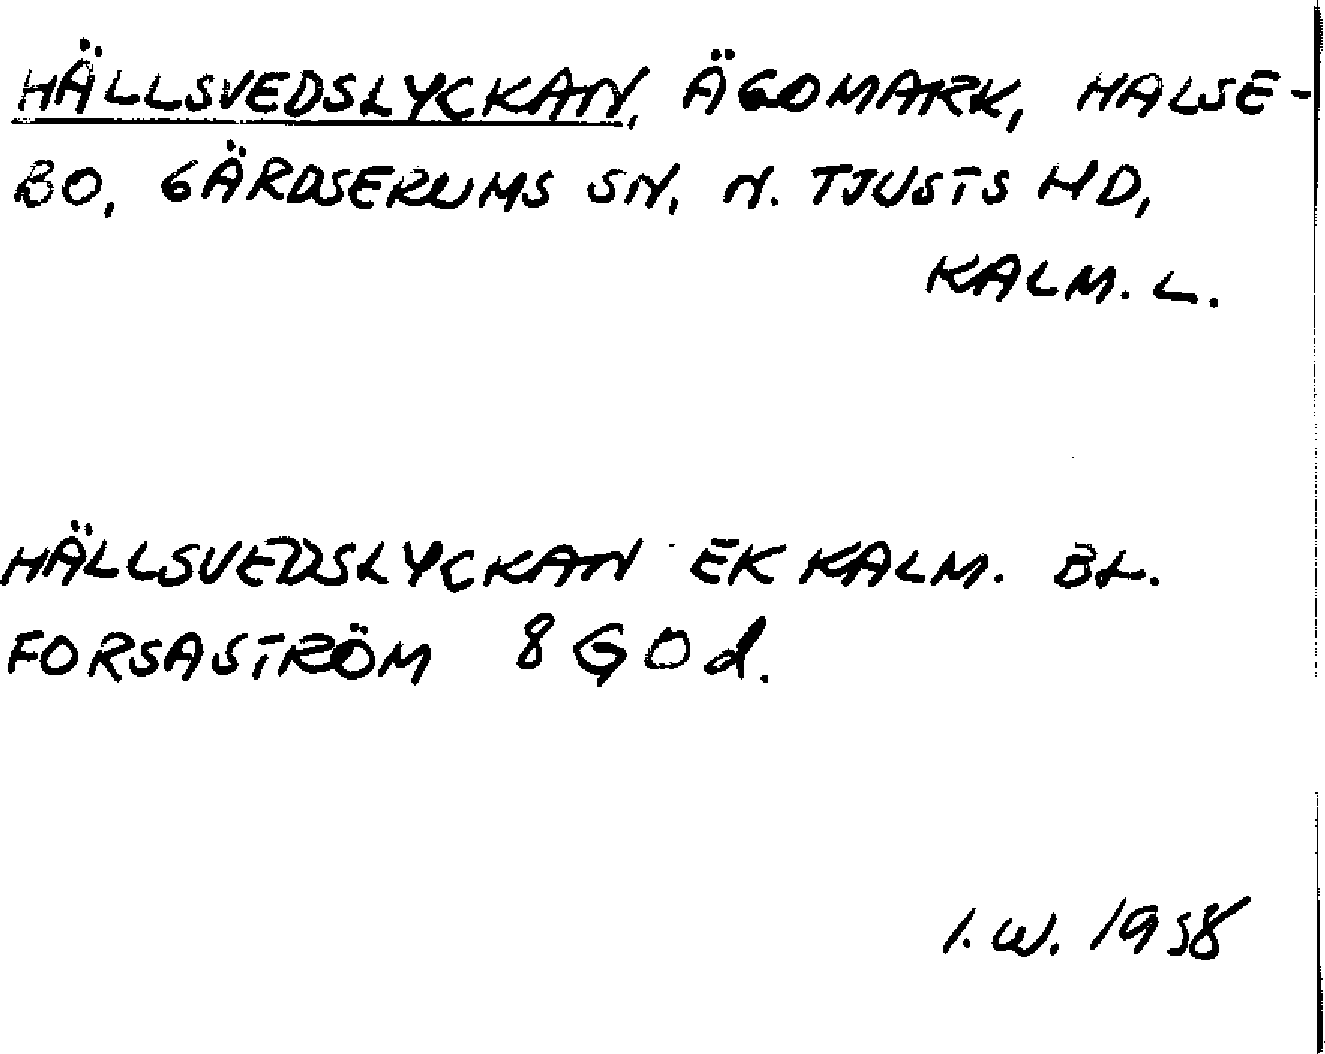 HÄLLSVEDSLYCKAN, ÄGOMARK, HALSE-
BO, GÄRDSERUMS SN, N. TJUSTS HD,
KALM. L.
HÄLLSVEDSLYCKAN EK KALM. BL.
FORSASTRÖM 8 G 0 d.
I. W. 1958